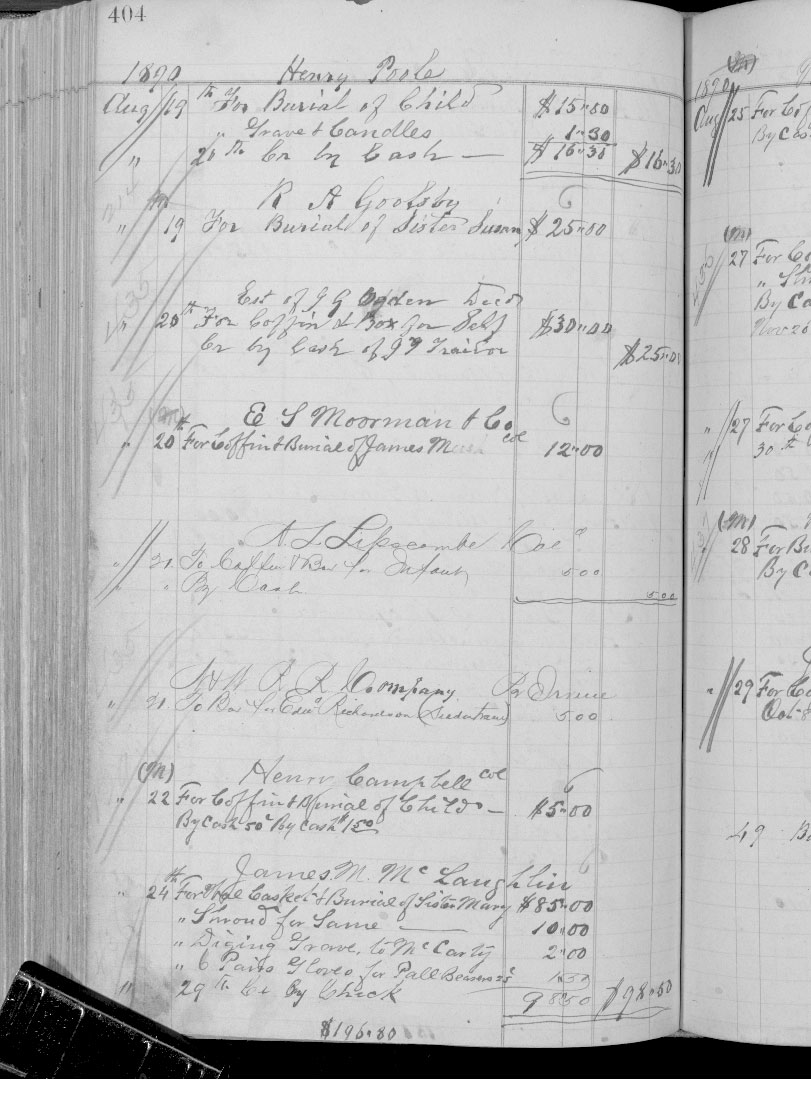 404
1890 Henry Poole
Aug 19th For Burial of Child $15.00
" Grave & Candles 1.30
" 20th Cr by Cash — $16.30 $16.30
R A Goolsby
" 19 For Burial of Sister Susan $25.00
Est of J G Ogden Decd
" 20th For Coffin & Box for Self $30.00
Cr by Cash of J T Traitor $25.00
(M) E S Moorman & Co col
" 20th For Coffin & Burial of James 12.00
A. L. Lipscombe Col
" 21 To Coffin & Box for Infant 5.00
" " By Cash 5.00
N & W R R Company
" 21 To Box for Edwd Richardson 5.00
(M) Henry Campbell col
" 22 For Coffin & Burial of Child — $5.00
By Cash 50c By Cash $1.50
James. M. McLaughlin
" 24th For Casket & Burial of Sister Mary $85.00
" Shroud for Same — 10.00
" Diging Grave, to McCarty 2.00
" 6 Pairs Gloves for Pall Bearers 25c 1.50
" 29th Cr By Check 98.50 $98.50
$196.80
1890
Aug 25 For
By Cas
(M)
27 For Co
"
By Ca
Nov 20
" 27 For Co
" 30th
(M)
28 For Bu
By C
" 29 For Co
Oct 8
49